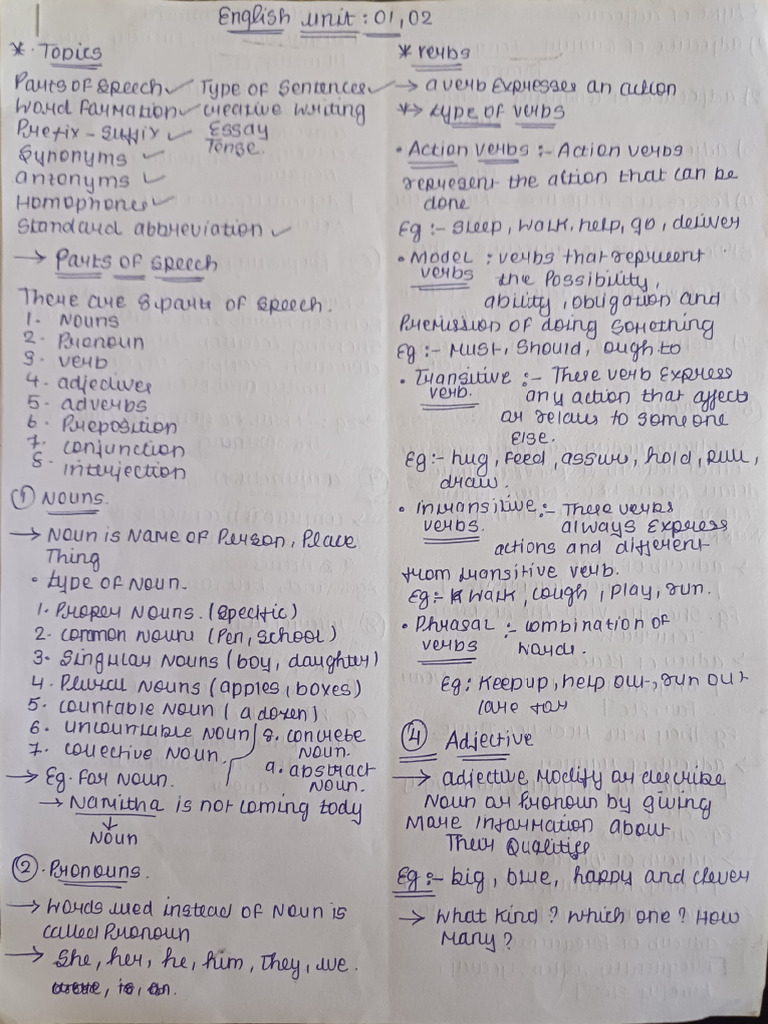 English unit : 01, 02
* Topics
Parts of speech ✓ Type of Sentences ✓
Word formation ✓ creative writing
Prefix - suffix ✓ Essay
Synonyms ✓ Tense.
antonyms ✓
Homophones ✓
Standard abbreviation ✓
→ Parts of speech
There are 8 parts of speech.
1. Nouns
2. Pronoun
3. verb
4. adjectives
5. adverbs
6. Preposition
7. conjunction
8. interjection
① Nouns.
→ Noun is Name of Person, Place
Thing
• type of Noun.
1. Proper Nouns. (specific)
2. common Nouns (Pen, school)
3. Singular Nouns (boy, daughter)
4. Plural Nouns (apples, boxes)
5. countable Noun (a dozen)
6. uncountable Noun
7. collective Noun.
8. concrete
Noun.
9. abstract
Noun.
→ Eg. for Noun.
→ Namitha is not coming tody
↓
Noun
② . Pronouns.
→ words used instead of Noun is
called Pronoun
→ She, her, he, him, They, we.
* verbs
→ a verb expresses an action
*→ type of verbs
• Action verbs :- Action verbs
represent the action that can be
done
Eg :- sleep, walk, help, go, deliver
• Model : verbs that represent
verbs the Possibility,
ability, obligation and
Premission of doing something
Eg :- Must, Should, ought to
• Transitive :- These verb express
verb. any action that affects
or relates to someone
else.
Eg :- hug, feed, assure, hold, rule,
draw.
• intransitive :- These verbs
verbs. always express
actions and different
from transitive verb.
Eg :- walk, cough, play, run.
• Phrasal :- combination of
verbs words.
Eg : Keep up, help out, run out
care for
④ Adjective
→ adjective modify or describe
Noun or Pronoun by giving
More information about
Their Qualities
Eg :- big, blue, happy and clever
→ What kind ? Which one ? How
Many ?